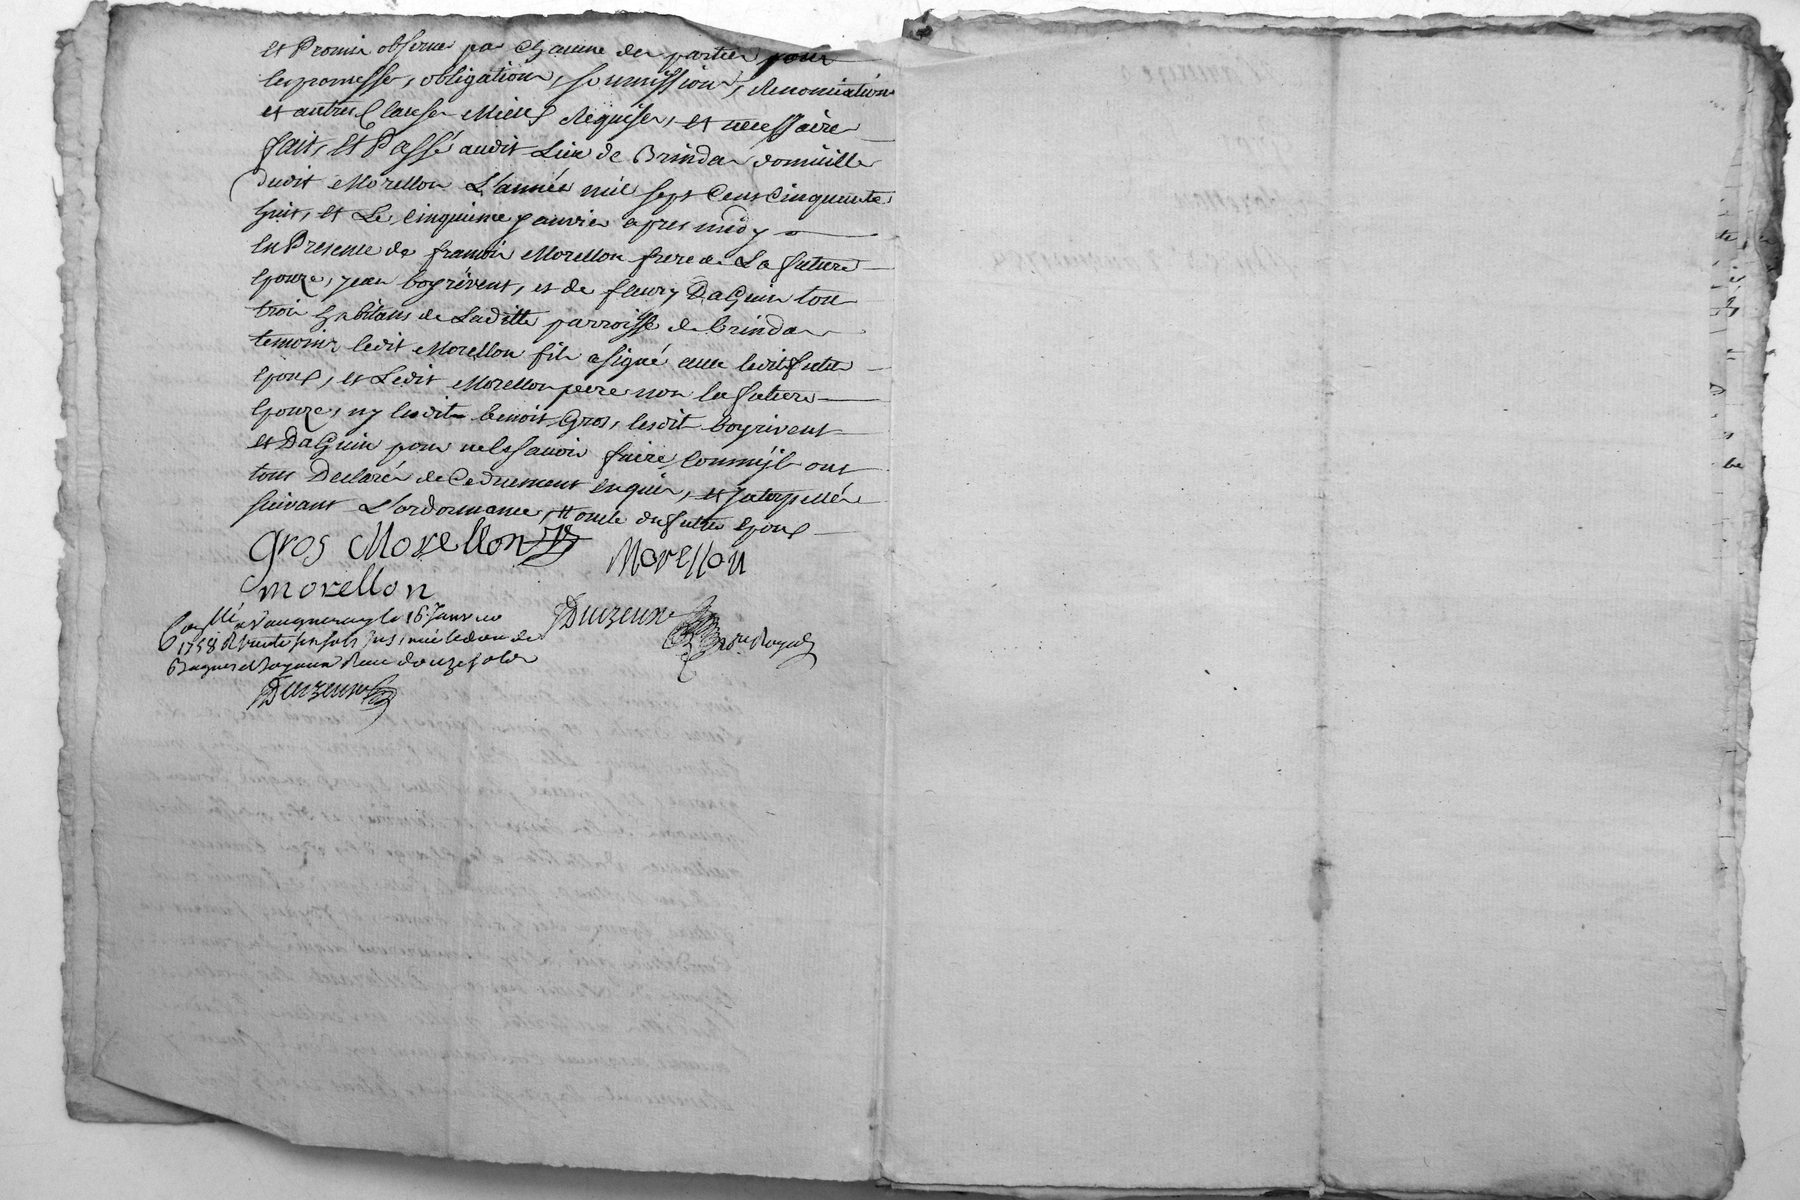 et Promis observer par Chacune des parties pour
les promesses, obligations, soumissions, Renonciations
et autres Clauses Mieux Requises, et necessaire
fait, et Passé audit Lieu de Brindas domicille
dudit Morellon L'année mil sept Cens Cinquante
huit, et Le Cinquième janvier apres midy
En Presence de francois Morellon frere de La future
Epouze, jean boyrivent, et de fleury DaGuin tous
trois habitans de Laditte parroisse de brindas
temoins ledit Morellon fils a signé avec ledit futur
Epoux, et Ledit Morellon pere non la future
Epouze, ny lesdits benoit Gros, lesdit boyrivent
et DaGuin pour ne le sçavoir faire, comm'ils ont
tous Declarés de Ce duement Enquis, et Interpellés
suivant L'ordonnance, oncle du futur Epoux
Gros Morellon
Morellon
morellon
Conllé a Vaugneray le 16 Janvier
1758 R trente six sols
Bagues et Joyaux Reçu douze sols
Duizeux
No.re Royal
Duizeux